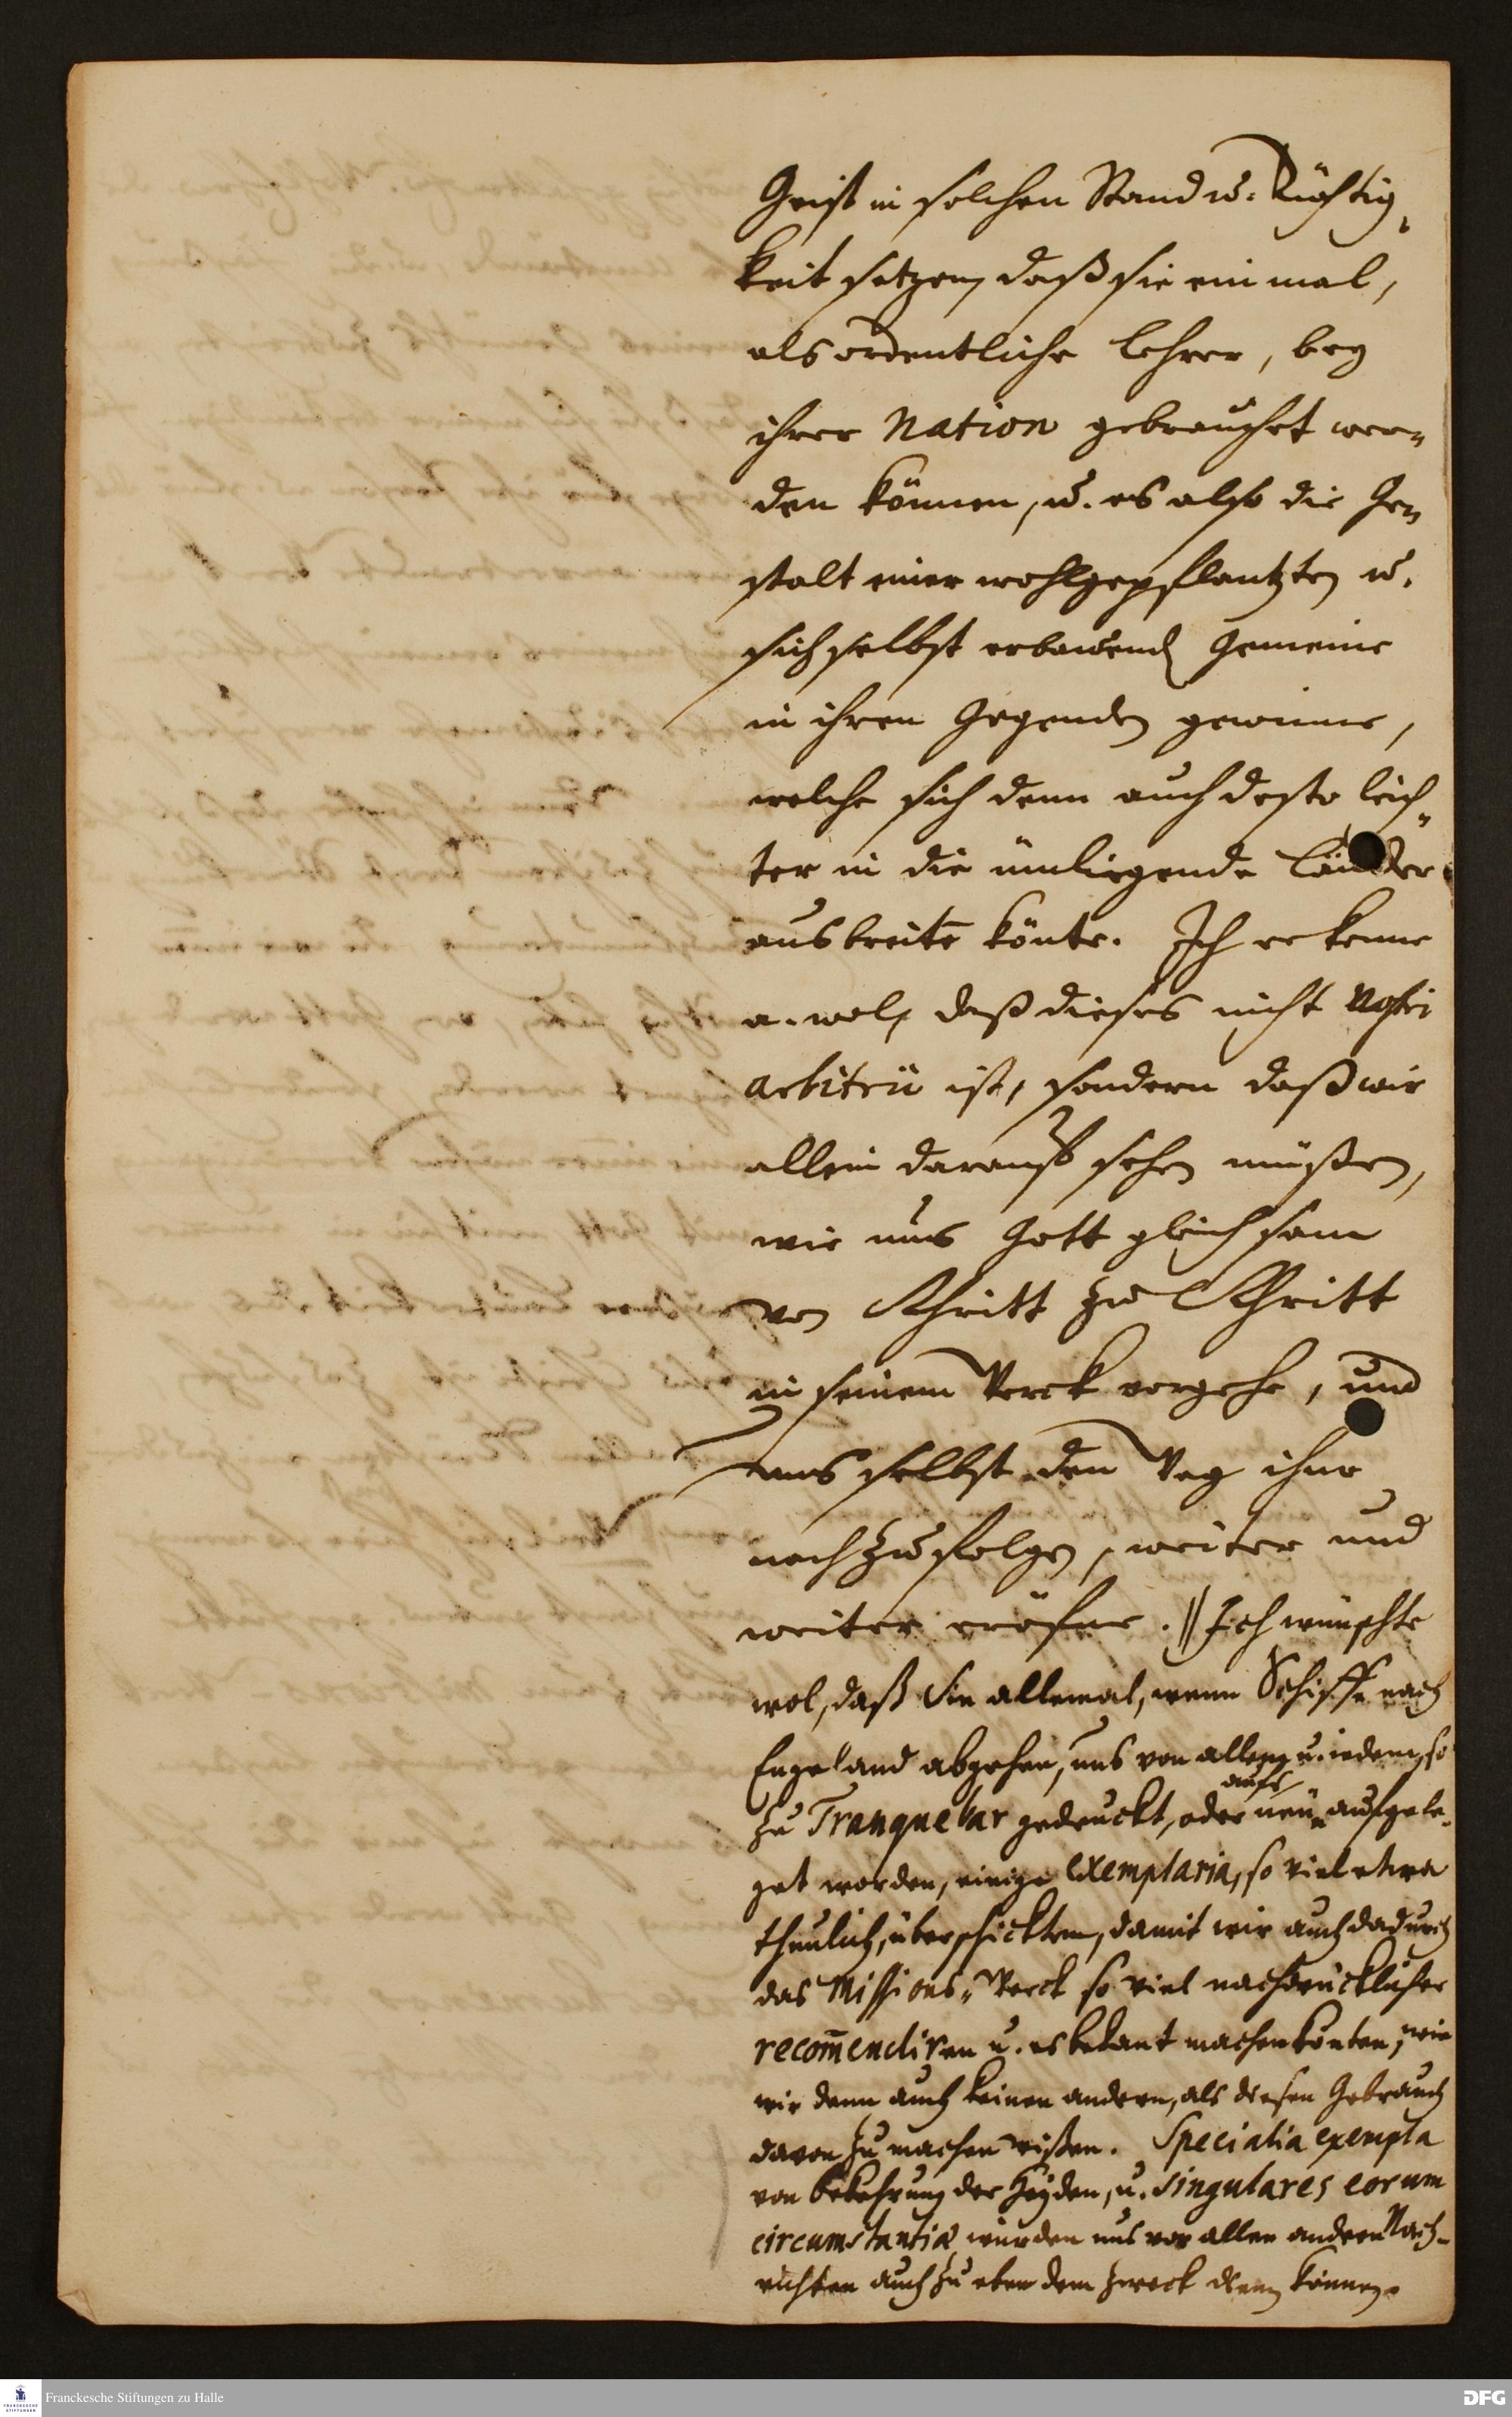 Geist in solchen Stand u. Tüchtig-
keit setzen, daß sie ein mal,
als ordentliche Lehrer, bey
ihrer Nation gebrauchet wer-
den können, u. es also die Ge-
stalt einer wohlgepflantzten u.
sich selbst erbauend Gemeine
in ihren Gegenden gewinne,
welche sich denn auch desto leich-
ter in die ümliegende Länder
ausbreitē könte. Ich erkenne
a. wol, daß dieses nicht nostri
arbitrii ist, sondern daß wir
allein darauf sehen müßen,
wie uns Gott gleichsam
von Schritt zu Schritt
in seinem Werck vorgehe, und
uns selbst den Weg ihme
nachzufolgen, weiter und
weiter eröfne. || Ich wünschte
wol, daß Sie allemal, wenn Schiffe nach
Engeland abgehen, uns von allem u. iedem, so
zu Tranquebar gedruckt, oder aufs neue aufgele-
get worden, einige exemplaria, so viel etwa
thunlich, überschickten, damit wir auch dadurch
das Missions-Werck so viel nachdrücklicher
recom̄endiren u. es bekant machen könten; wie
wir denn auch keinen andern, als diesen Gebrauch
davon zu machen wißen. Specialia exempla
von bekehrung der Heyden, u. singulares eorum
circumstantiæ würden uns vor allen andern Nach-
richten auch zu eben dem zweck dienen können.
Franckesche Stiftungen zu Halle
FRANCKESCHE STIFTUNGEN
DFG